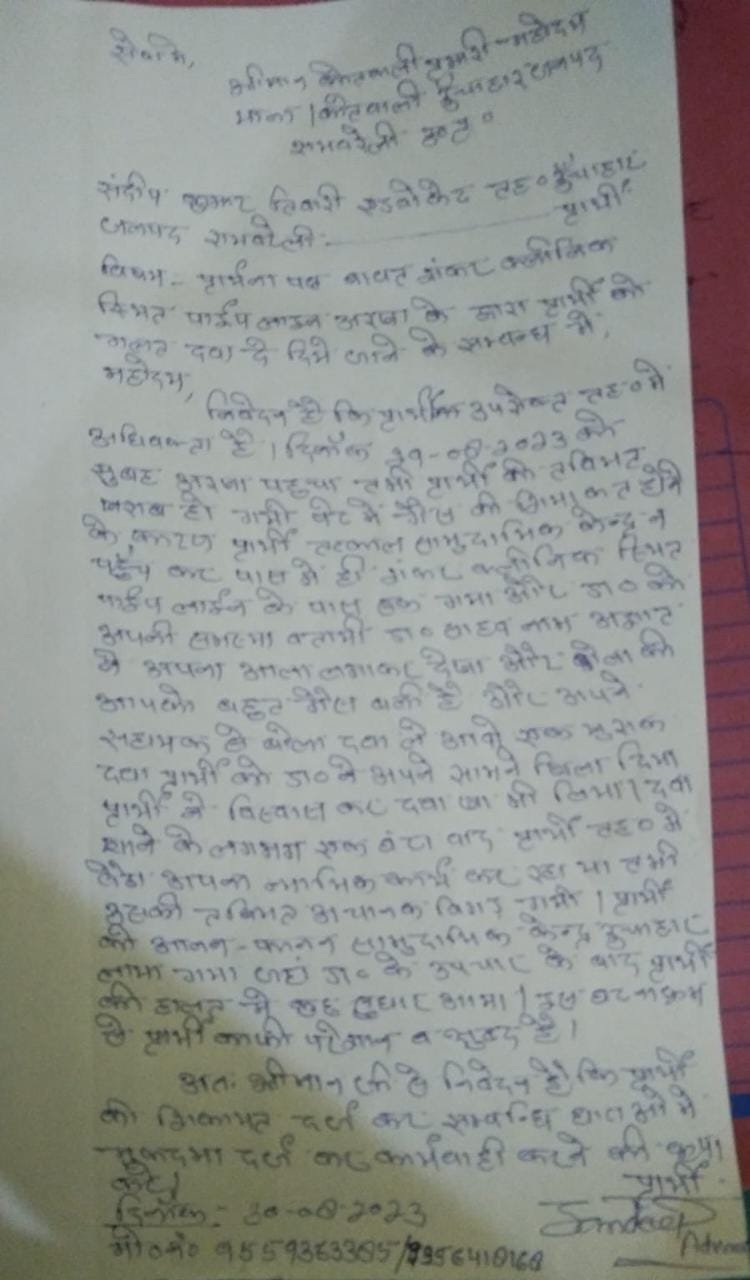 सेवा में,
श्रीमान कोतवाली प्रभारी महोदय
थाना/कोतवाली ऊँचाहार जनपद
रायबरेली उ०प्र०
संदीप कुमार तिवारी एडवोकेट तह० ऊँचाहार
जनपद रायबरेली. प्रार्थी
विषय - प्रार्थना पत्र बावत शंकर क्लीनिक
स्थित पाईप लाइन अरखा के द्वारा प्रार्थी को
गलत दवा दे दिये जाने के सम्बन्ध में,
महोदय,
निवेदन है कि प्रार्थी उपरोक्त तह० में
अधिवक्ता है। दिनाँक -08-2023 को
सुबह अरखा पहुचा तभी प्रार्थी की तबियत
खराब हो गयी पेट में गैस की होने
के कारण प्रार्थी तत्काल सामुदायिक केन्द्र न
पहुँच कर पास में ही शंकर क्लीनिक स्थित
पाईप लाईन के पास रुक गया और डा० को
अपनी समस्या बतायी डा० साहब नाम अज्ञात
ने अपना आला लगाकर देखा और बोला की
आपके बहुत गैस बनी है और अपने
सहायक से बोला दवा ले आओ एक खुराक
दवा प्रार्थी को डा० ने अपने सामने खिला दिया
प्रार्थी ने विश्वास कर दवा खा भी लिया। दवा
खाने के लगभग एक घंटा बाद प्रार्थी तह० में
बैठा अपना न्यायिक कार्य कर रहा था तभी
उसकी तबियत अचानक बिगड़ गयी। प्रार्थी
को आनन-फानन सामुदायिक केन्द्र ऊँचाहार
लाया गया जहां डा० के उपचार के बाद प्रार्थी
की हालत में कुछ सुधार आया। इस घटनाक्रम
से प्रार्थी काफी परेशान व है।
अतः श्रीमान जी से निवेदन है कि प्रार्थी
की शिकायत दर्ज कर सम्बन्धि धाराओ में
मुकदमा दर्ज कर कार्यवाही करने की कृपा
करें। प्रार्थी
दिनाँक:- 30-08-2023
Sandeep
मो०नं० 9559363385/9956418168